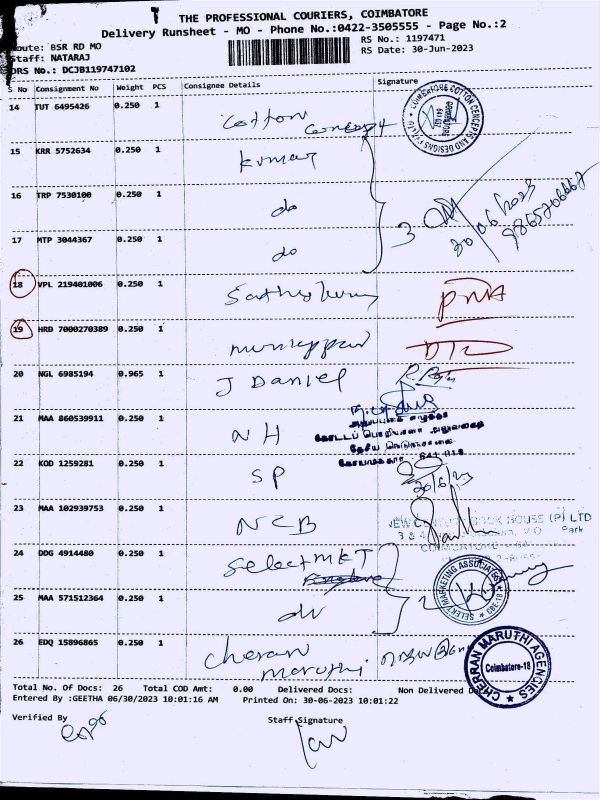 THE PROFESSIONAL COURIERS, COIMBATORE
Delivery Runsheet - MO - Phone No.:0422-3505555 - Page No.:2
Route: BSR RD MO
RS No.: 1197471
Staff: NATARAJ
RS Date: 30-Jun-2023
DRS No.: DCJB119747102
S No Consignment No Weight PCS Consignee Details Signature
14 TUT 6495426 0.250 1 Cotton Concept
COIMBATORE COTTON CONCEPTS AND DESIGNS P LTD
15 KRR 5752634 0.250 1 kumar
16 TRP 7530100 0.250 1 do
3
30/06/2023
9865206668
17 MTP 3044367 0.250 1 do
18 VPL 219401006 0.250 1
19 HRD 7000270389 0.250 1
20 NGL 6985194 0.965 1 J Daniel
R. Raju
21 MAA 860539911 0.250 1 NH
தேசிய நெடுஞ்சாலை
22 KOD 1259281 0.250 1 SP
30/6/23
23 MAA 102939753 0.250 1 NCB
NEW CENTURY BOOK HOUSE (P) LTD
24 DDG 4914480 0.250 1 Select MKT
SELEKT MARKETING ASSOCIATES
2
25 MAA 571512364 0.250 1 do
26 EDQ 15896865 0.250 1 Cheran maruthi
CHERRAN MARUTHI AGENCIES
Coimbatore-18
Total No. Of Docs: 26 Total COD Amt: 0.00 Delivered Docs: Non Delivered Docs
Entered By :GEETHA 06/30/2023 10:01:16 AM Printed On: 30-06-2023 10:01:22
Verified By Staff Signature